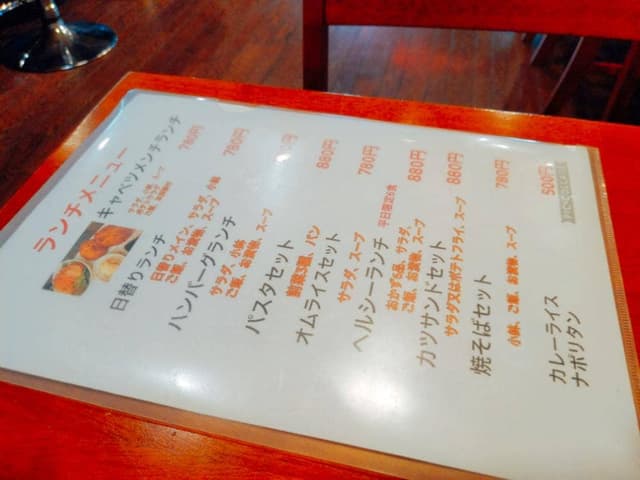 ランチメニュー
キャベツメンチランチ 780円
日替りランチ 780円
日替りメイン、サラダ、小鉢
ご飯、お漬物、スープ
ハンバーグランチ
サラダ、小鉢
ご飯、お漬物、スープ
パスタセット 880円
前菜3種、パン
オムライスセット 780円
サラダ、スープ
ヘルシーランチ 平日限定6食 880円
おかず5迄、サラダ、
ご飯、お漬物、スープ
カツサンドセット 880円
サラダ又はポテトフライ、スープ
焼そばセット 780円
小鉢、ご飯、お漬物、スープ
500円
カレーライス
ナポリタン